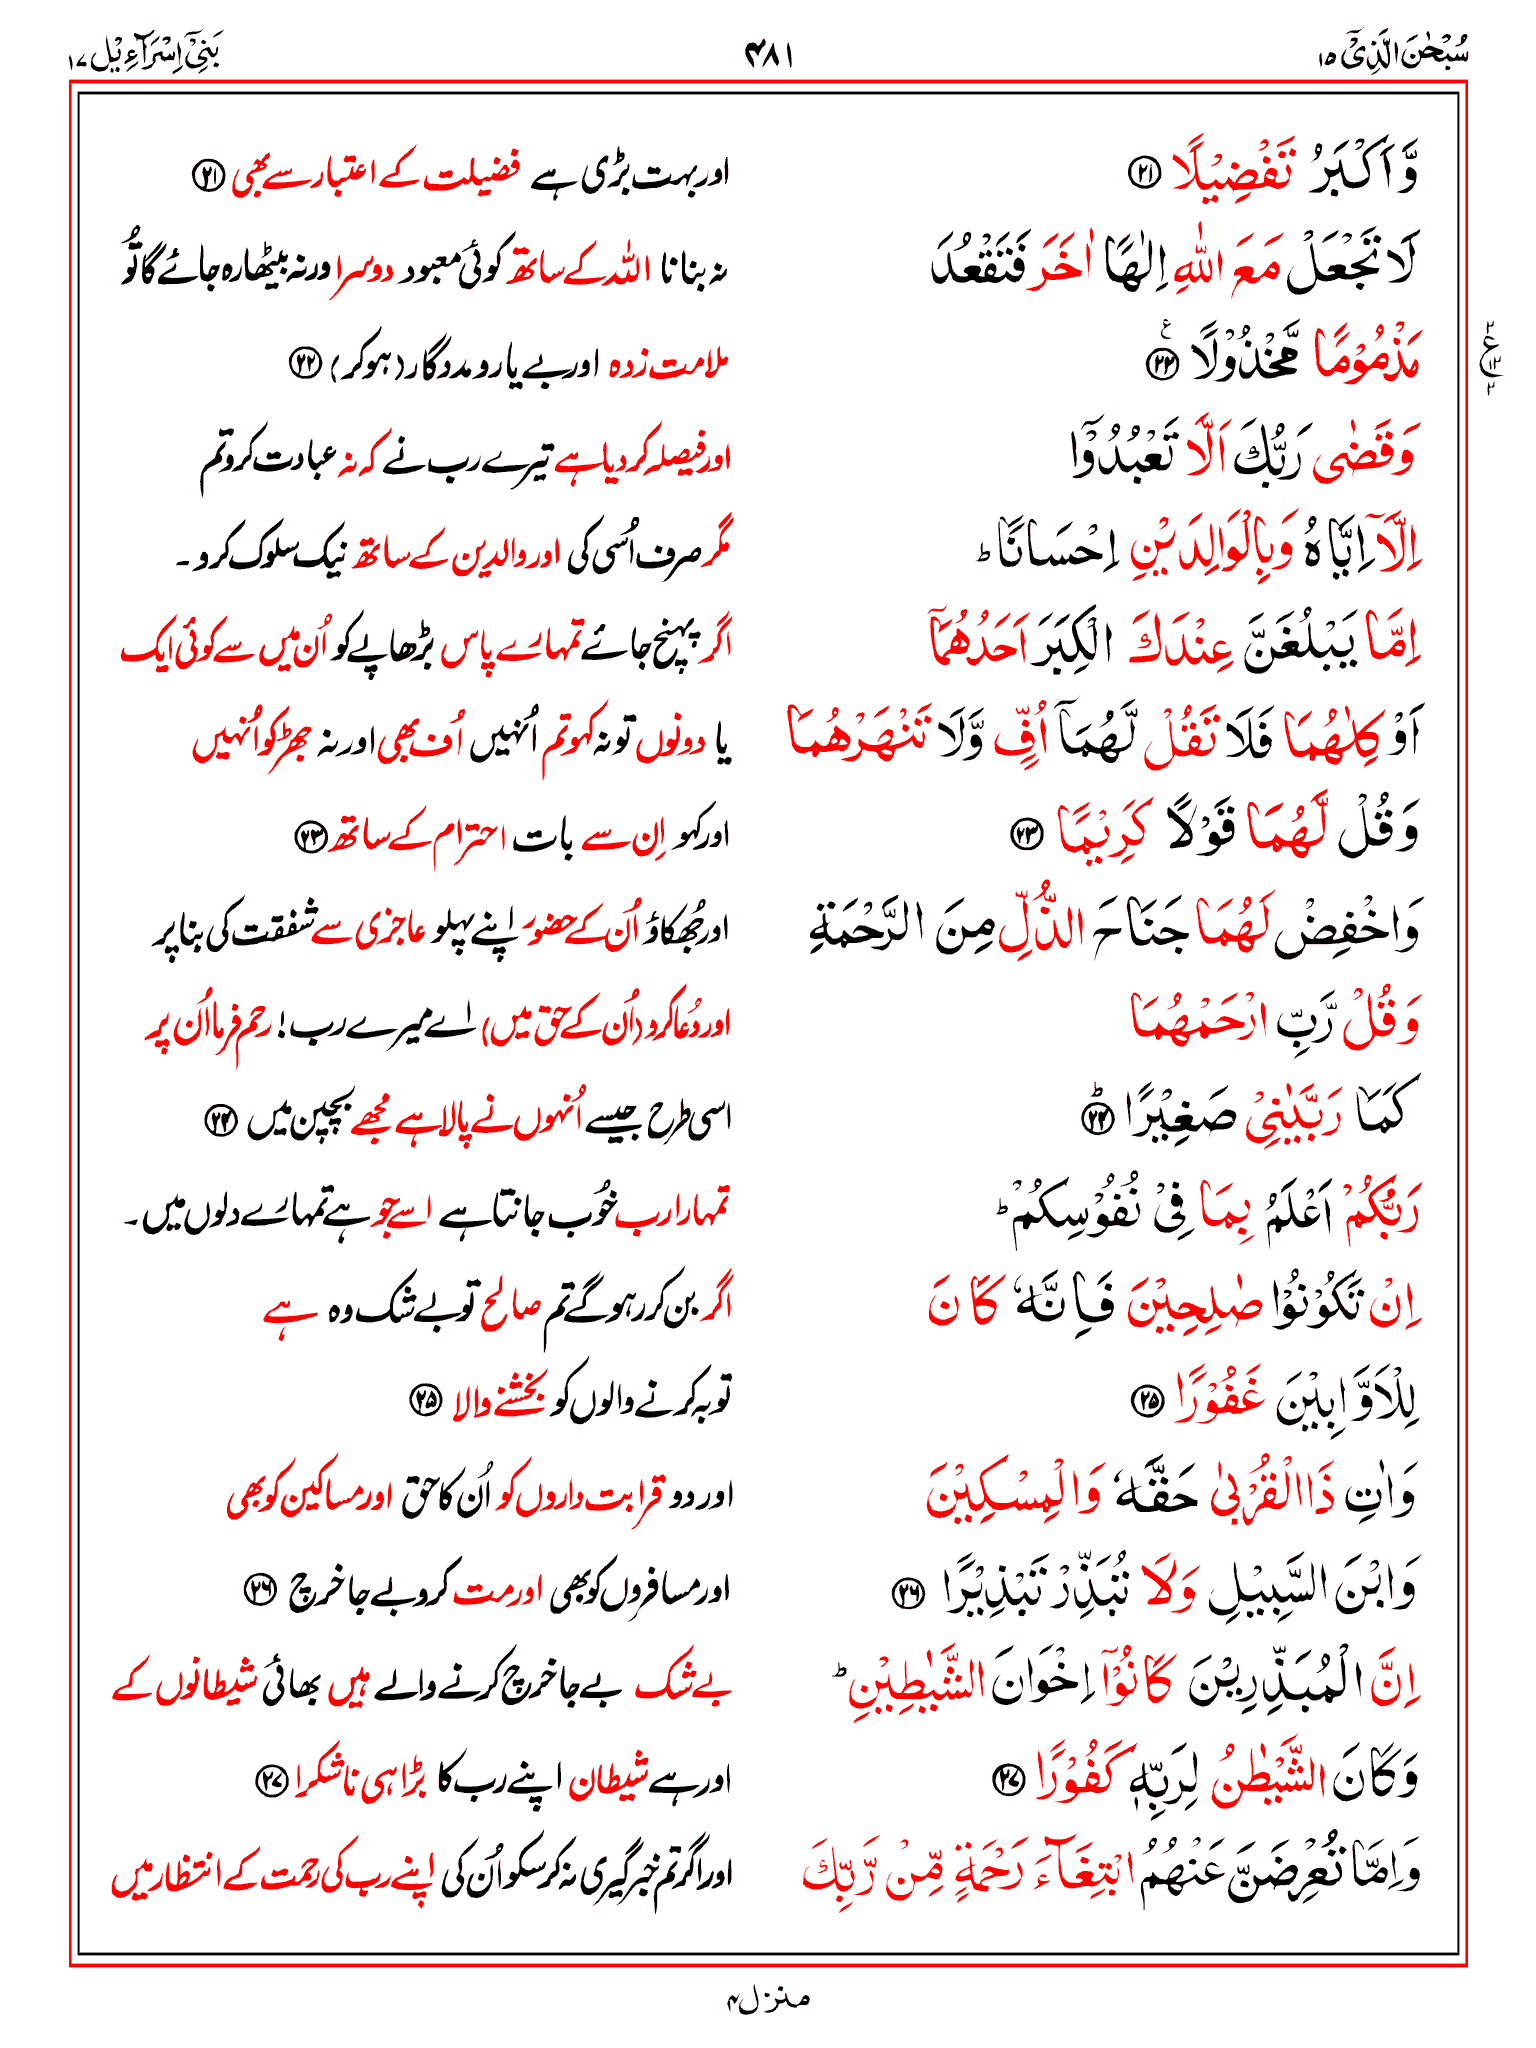 سُبْحٰنَ الَّذِیْۤ ۱۵
۴۸۱
بَنِیْۤ اِسْرَآءِیْل ۱۷
وَّ اَكْبَرُ تَفْضِیْلًا ۝۲۱ اور بہت بڑی ہے فضیلت کے اعتبار سے بھی ۝۲۱
لَا تَجْعَلْ مَعَ اللّٰهِ اِلٰهًا اٰخَرَ فَتَقْعُدَ نہ بنانا اللہ کے ساتھ کوئی معبود دوسرا ورنہ بیٹھا رہ جائے گا تُو
مَذْمُوْمًا مَّخْذُوْلًا ۝۲۲ۧ ملامت زدہ اور بے یار و مددگار (ہو کر) ۝۲۲
وَ قَضٰی رَبُّكَ اَلَّا تَعْبُدُوْۤا اور فیصلہ کر دیا ہے تیرے رب نے کہ نہ عبادت کرو تم
اِلَّاۤ اِیَّاهُ وَ بِالْوَالِدَیْنِ اِحْسَانًا ؕ مگر صرف اُسی کی اور والدین کے ساتھ نیک سلوک کرو۔
اِمَّا یَبْلُغَنَّ عِنْدَكَ الْكِبَرَ اَحَدُهُمَاۤ اگر پہنچ جائے تمہارے پاس بڑھاپے کو اُن میں سے کوئی ایک
اَوْ كِلٰهُمَا فَلَا تَقُلْ لَّهُمَاۤ اُفٍّ وَّ لَا تَنْهَرْهُمَا یا دونوں تو نہ کہو تم اُنہیں اُف بھی اور نہ جھڑکو اُنہیں
وَ قُلْ لَّهُمَا قَوْلًا كَرِیْمًا ۝۲۳ اور کہو اِن سے بات احترام کے ساتھ ۝۲۳
وَ اخْفِضْ لَهُمَا جَنَاحَ الذُّلِّ مِنَ الرَّحْمَةِ اور جُھکاؤ اُن کے حضور اپنے پہلو عاجزی سے شفقت کی بنا پر
وَ قُلْ رَّبِّ ارْحَمْهُمَا اور دُعا کرو (اُن کے حق میں) اے میرے رب! رحم فرما اُن پر
كَمَا رَبَّیٰنِیْ صَغِیْرًا ۝۲۴ؕ اسی طرح جیسے اُنہوں نے پالا ہے مجھے بچپن میں ۝۲۴
رَبُّكُمْ اَعْلَمُ بِمَا فِیْ نُفُوْسِكُمْ ؕ تمہارا رب خُوب جانتا ہے اسے جو ہے تمہارے دلوں میں۔
اِنْ تَكُوْنُوْا صٰلِحِیْنَ فَاِنَّهٗ كَانَ اگر بن کر رہو گے تم صالح تو بے شک وہ ہے
لِلْاَوَّابِیْنَ غَفُوْرًا ۝۲۵ توبہ کرنے والوں کو بخشنے والا ۝۲۵
وَ اٰتِ ذَا الْقُرْبٰی حَقَّهٗ وَ الْمِسْكِیْنَ اور دو قرابت داروں کو اُن کا حق اور مساکین کو بھی
وَ ابْنَ السَّبِیْلِ وَ لَا تُبَذِّرْ تَبْذِیْرًا ۝۲۶ اور مسافروں کو بھی اور مت کرو بے جا خرچ ۝۲۶
اِنَّ الْمُبَذِّرِیْنَ كَانُوْۤا اِخْوَانَ الشَّیٰطِیْنِ ؕ بے شک بے جا خرچ کرنے والے ہیں بھائی شیطانوں کے
وَ كَانَ الشَّیْطٰنُ لِرَبِّهٖ كَفُوْرًا ۝۲۷ اور ہے شیطان اپنے رب کا بڑا ہی ناشکرا ۝۲۷
وَ اِمَّا تُعْرِضَنَّ عَنْهُمُ ابْتِغَآءَ رَحْمَةٍ مِّنْ رَّبِّكَ اور اگر تم خبر گیری نہ کر سکو اُن کی اپنے رب کی رحمت کے انتظار میں
۲
ع
۱۲
۲
منزل ۴